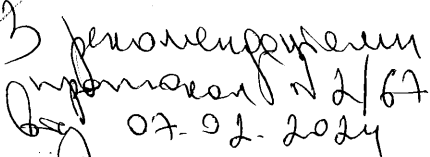 З рекомендаціями
протокол N 2/67
від 07.02.2024